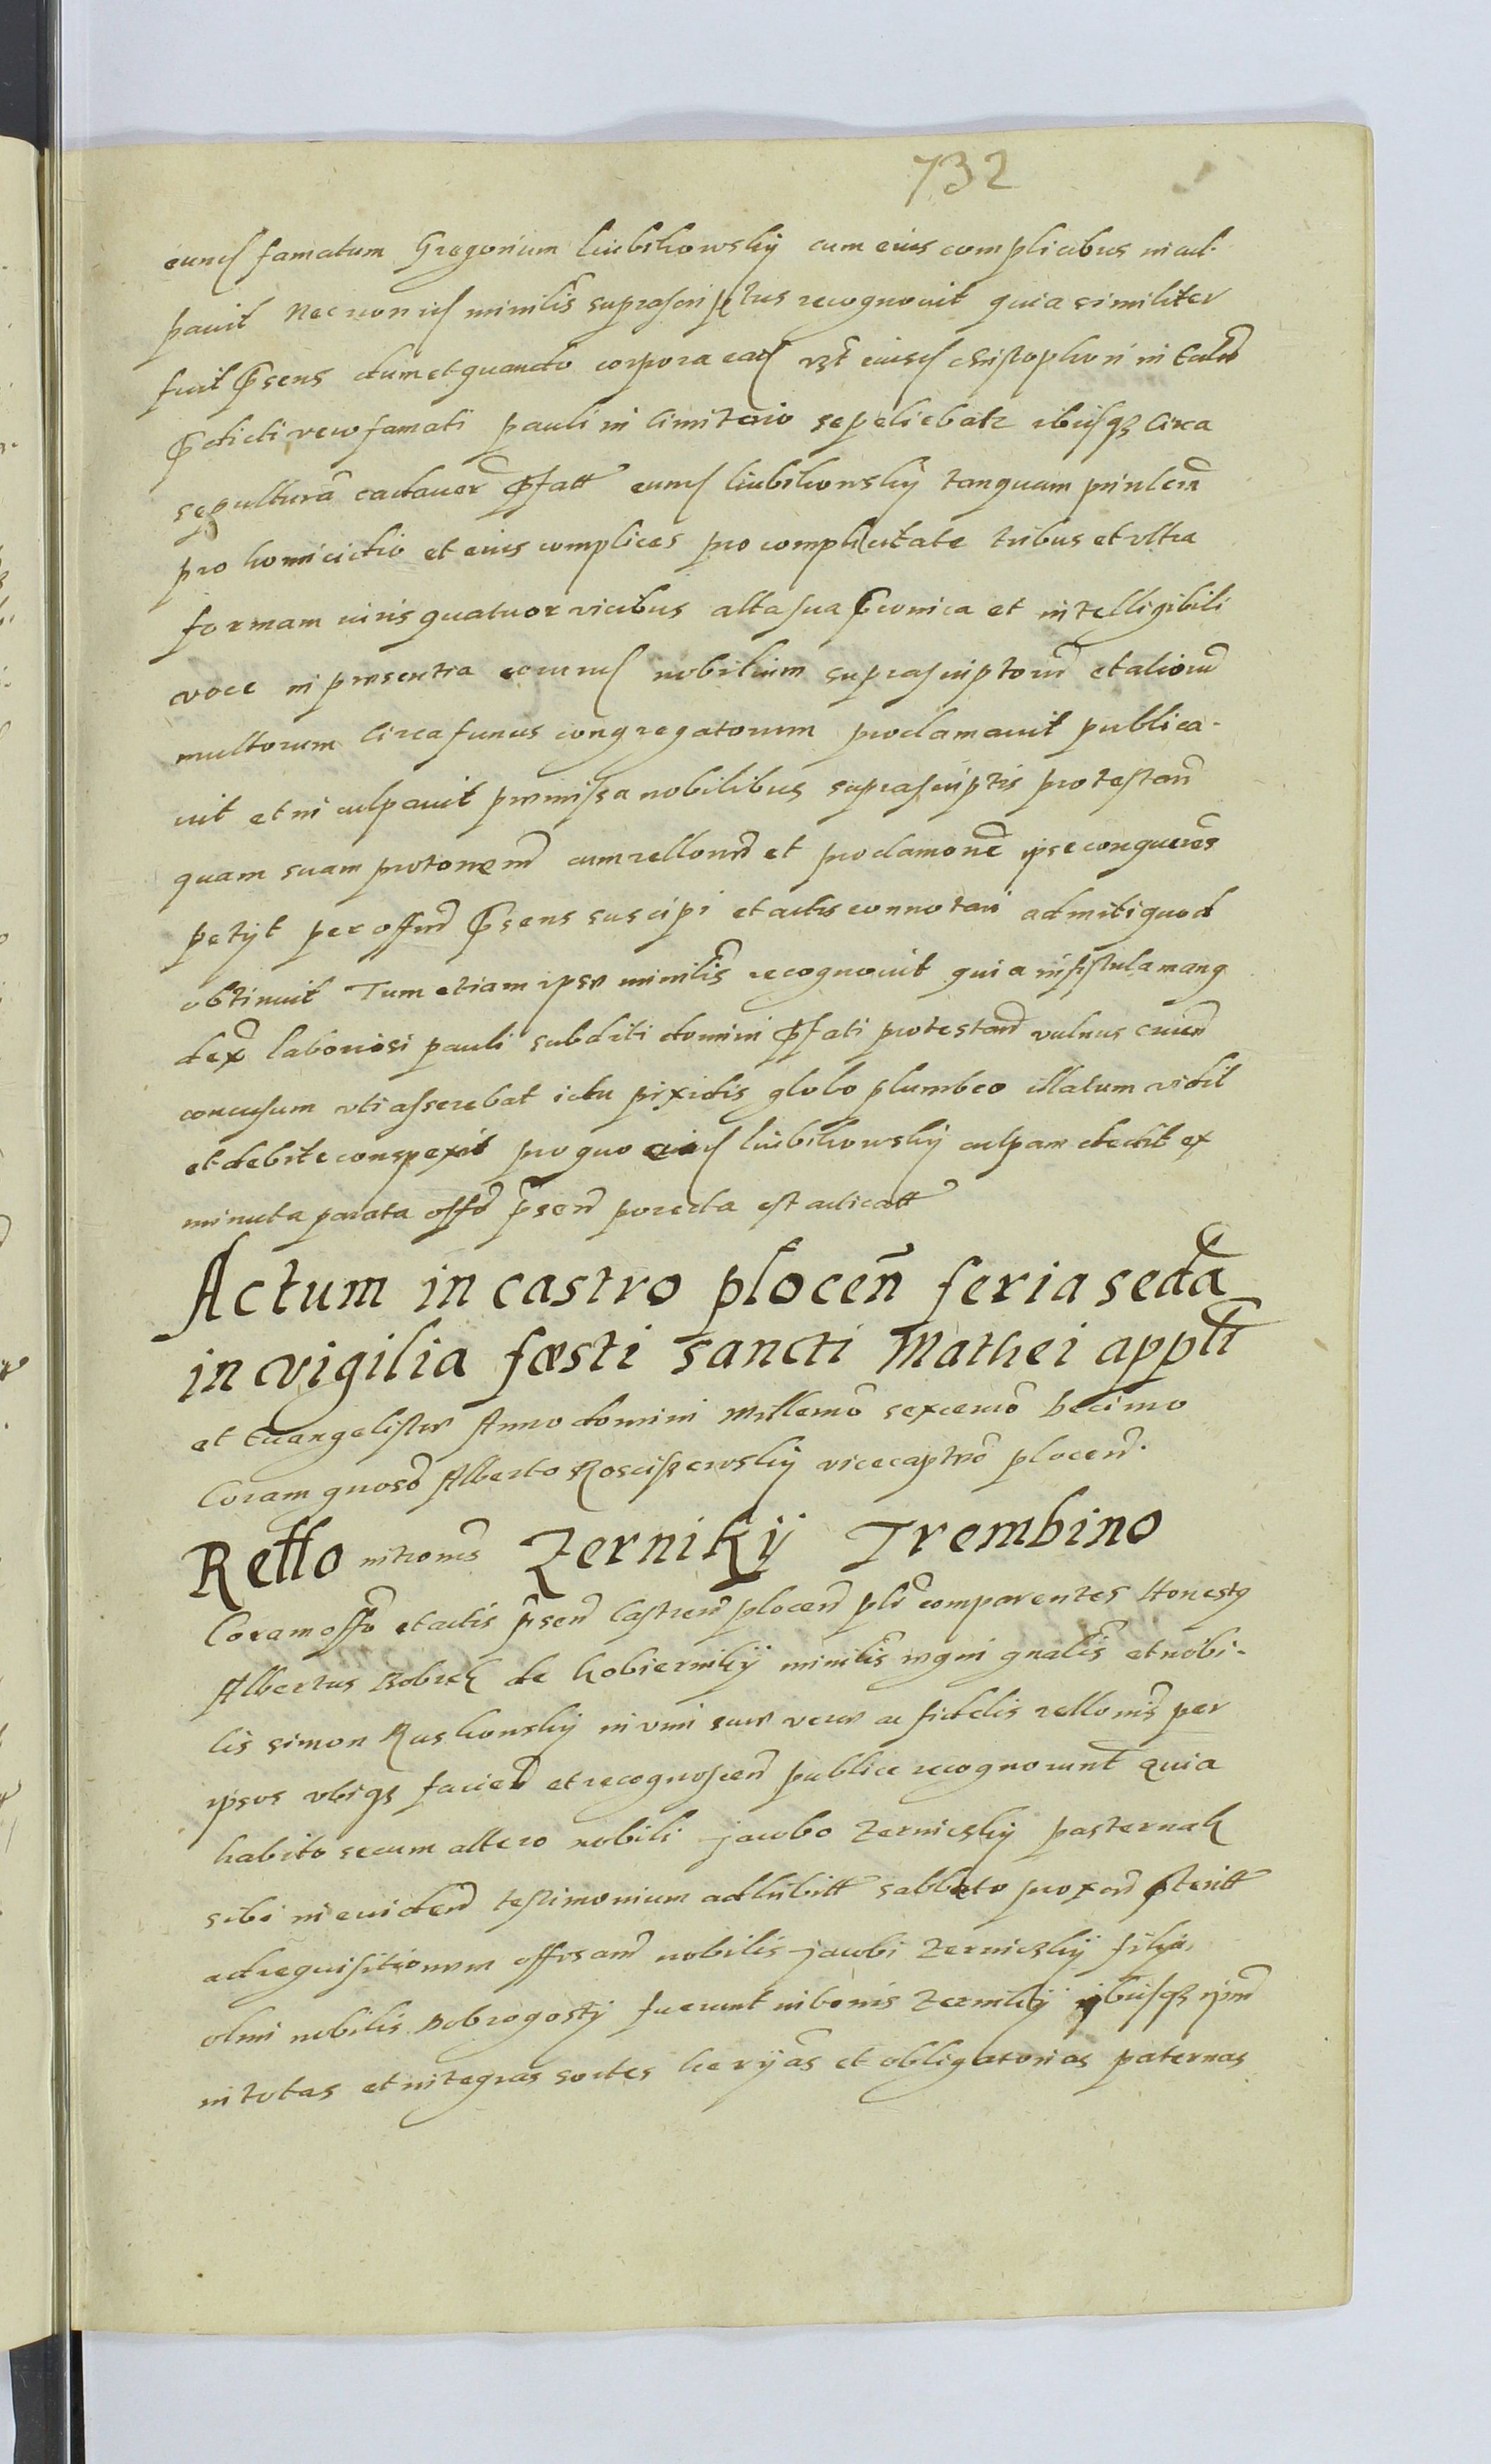 732
eund famatum Gregorium Liubikowskÿ cum eius complicibus incul-
pauit Nec non id minilis suprascriptus recognouit quia similiter
fuit pr̃sens dum et quando corpora ead vzt eiusd Christophori in
pr̃dicti vero famati Pauli in Cimiterio sepeliebatr ibidqꝫ Circa
sepulturã cadauer pr̃fatt eund Liubikowskÿ tanquam prinlem̃
pro homicidio et eius complices pro complicitate tribus et vltra
formam iuris quatuor vicibus alta sua pr̃conica et intelligibili
voce in præsentia eorund nobilium suprascriptorum̃ et aliorum̃
multorum Circa funus congregatorum proclamauit publica-
uit et inculpauit præmissa nobilibus suprascriptis protestan̄
quam suam protonem̃ cum rellone et proclamone ipse conquerens
petÿt per offm̃ pr̃sens suscipi et actis connotari admitti quod
obtinuit Tum etiam ipse minilis recognouit quia in fistula manq
dex̃ laboriosi Pauli subditi domini pr̃fati protestan̄ vulnus cruen̄
concussum vti asserebat ictu pixidis globo plumbeo illatum vidit
et debite conspexit pro quo eid Liubikowskÿ culpam dedit ex
minuta parata offo pr̃sen̄ porecta est
Actum in castro plocen̄ feria secdã
in vigilia fæsti sancti Mathei appli
et Euangelistæ Anno domini Millemo sexcemo Decimo
Coram gnoso Alberto Rosciszewskÿ vicecaptneo plocen̄.
Rello nitronis Zernikÿ Trembino
Coram offo et actis pr̃sen̄ Castren̄ plocen̄ plr comparentes Honestq
Albertus Bobrek de Kobiernikÿ minilis regni gnalis et nobi-
lis simon Ruskowskÿ in vim suæ veræ ac fidelis rellonis per
ipsos vbiqꝫ facien̄ et recognoscen̄ publice recognorunt Quia
habito secum altero nobili Jacobo Zernicskÿ pasternak
sibi in euiden̄ testimonium adhibitt sabbato proxen̄ pr̃teritt
ad requisitionem nobilis Jacobi Zernicskÿ filÿ
olim nobilis Dobrogostÿ fuerunt in bonis Zernikÿ ibidqꝫ ipm̃
in totas et integras sortes herÿas et obligatorias paternas